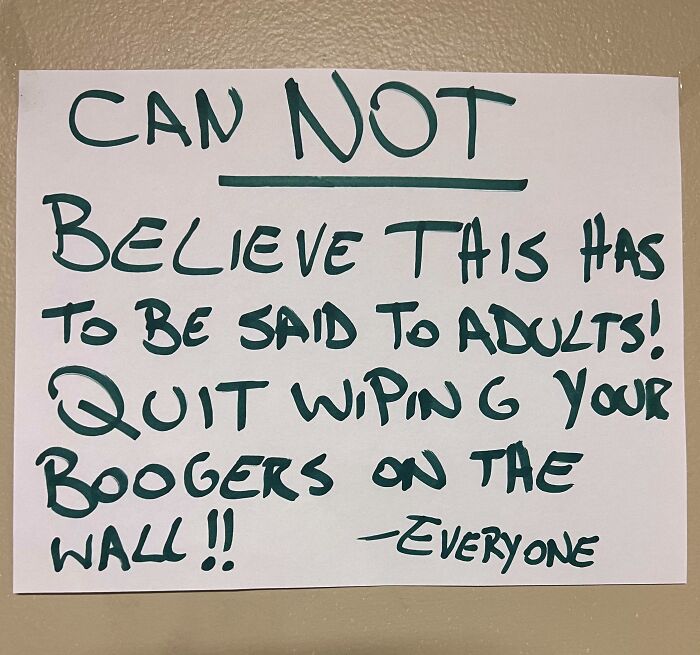 CAN NOT
BELIEVE THIS HAS
TO BE SAID TO ADULTS!
QUIT WIPING YOUR
BOOGERS ON THE
WALL!! -EVERYONE